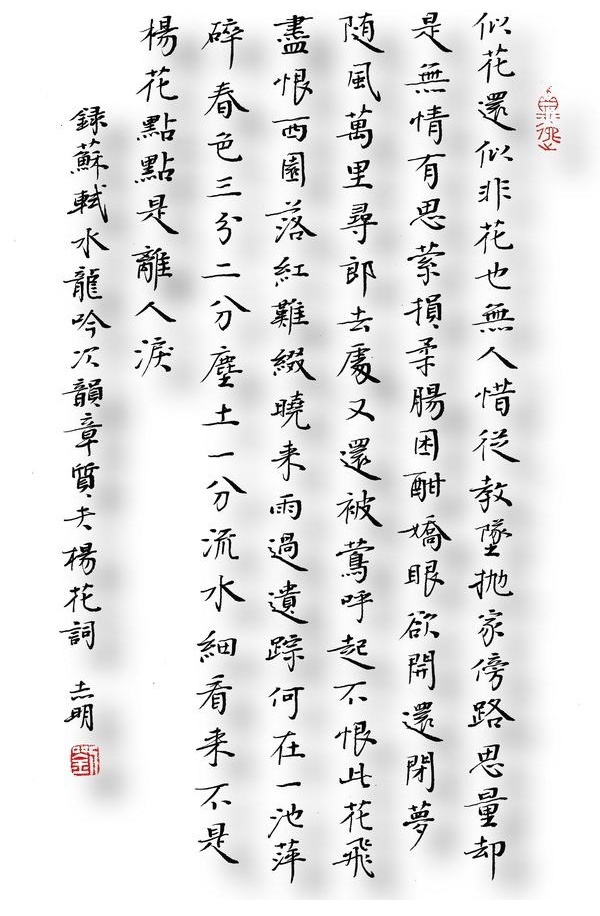 似花還似非花也無人惜従教墜抛家傍路思量却
是無情有思縈損柔腸困酣嬌眼欲開還閉夢
随風萬里尋郎去處又還被鶯呼起不恨此花飛
盡恨西園落紅難綴曉来雨過遺踪何在一池萍
碎春色三分二分塵土一分流水細看来不是
楊花點點是離人淚
録蘇軾水龍吟次韻章質夫楊花詞 志明
劉